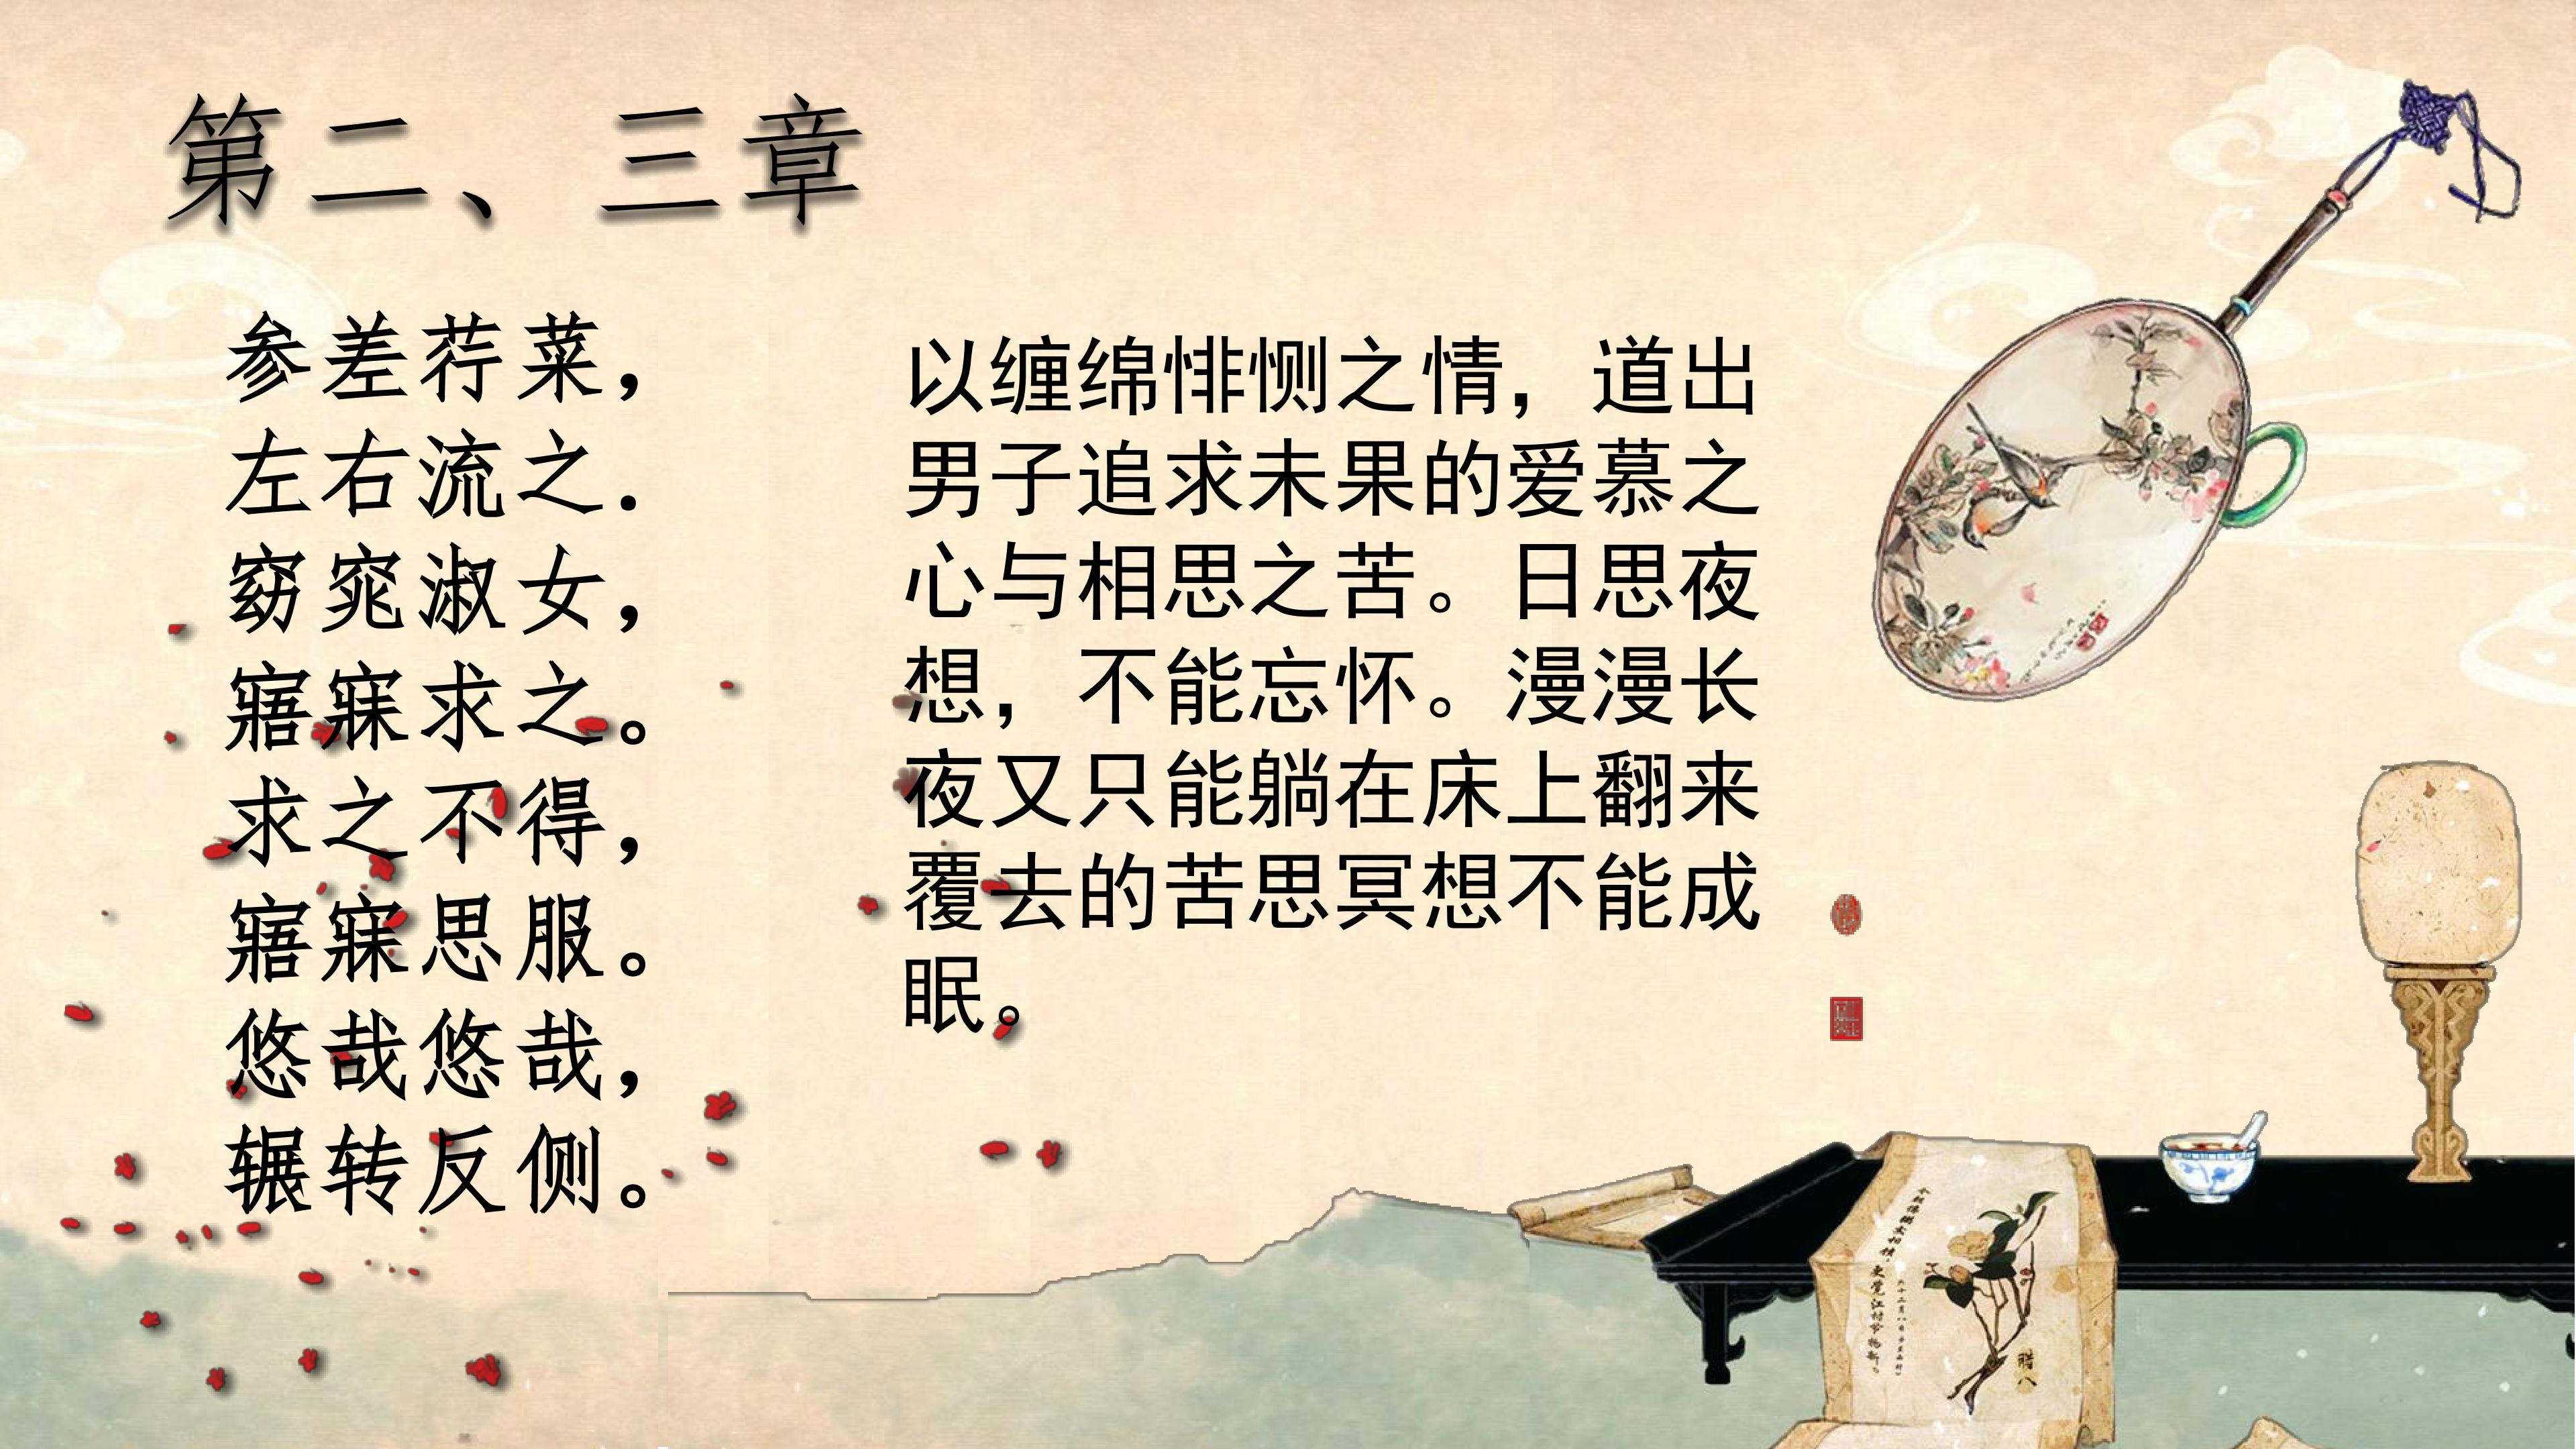 第二、三章
参差荇菜，
左右流之.
窈窕淑女，
寤寐求之。
求之不得，
寤寐思服。
悠哉悠哉，
辗转反侧。
以缠绵悱恻之情，道出
男子追求未果的爱慕之
心与相思之苦。日思夜
想，不能忘怀。漫漫长
夜又只能躺在床上翻来
覆去的苦思冥想不能成
眠。
腊八